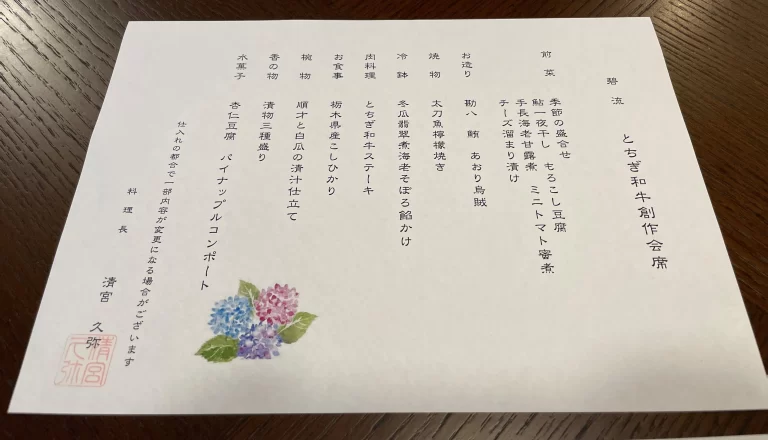 碧流
とちぎ和牛創作会席
前菜
季節の盛合せ
鮎一夜干し もろこし豆腐
手長海老甘露煮 ミニトマト蜜煮
チーズ溜まり漬け
お造り 勘八 鮪 あおり烏賊
焼物 太刀魚檸檬焼き
冷鉢 冬瓜翡翠煮海老そぼろ餡かけ
肉料理 とちぎ和牛ステーキ
お食事 栃木県産こしひかり
椀物 順才と白瓜の清汁仕立て
香の物 漬物三種盛り
水菓子 杏仁豆腐 パイナップルコンポート
仕入れの都合で一部内容が変更になる場合がございます
料理長 清宮 久弥